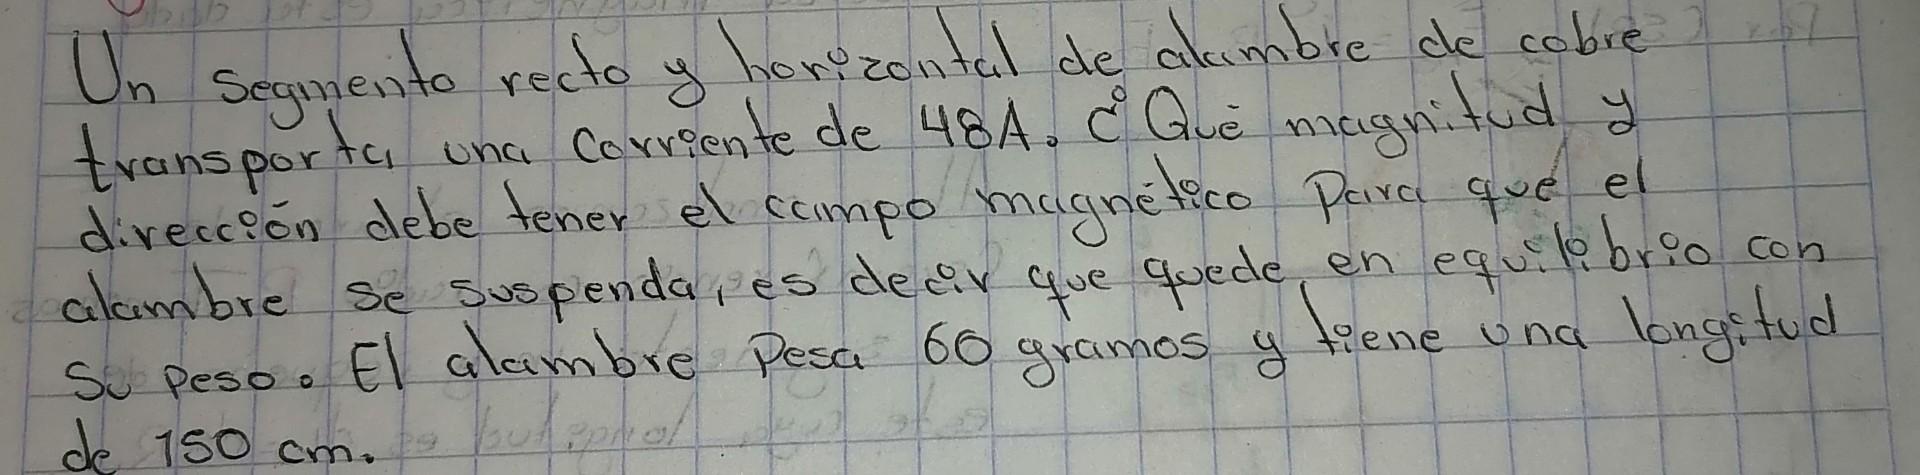 Un segmento recto y horizontal de alambre de cobre
transporta una corriente de 48A. ¿Qué magnitud y
dirección debe tener el campo magnético para que el
alambre se suspenda, es decir que quede en equilibrio con
su peso. El alambre pesa 60 gramos y tiene una longitud
de 150 cm.